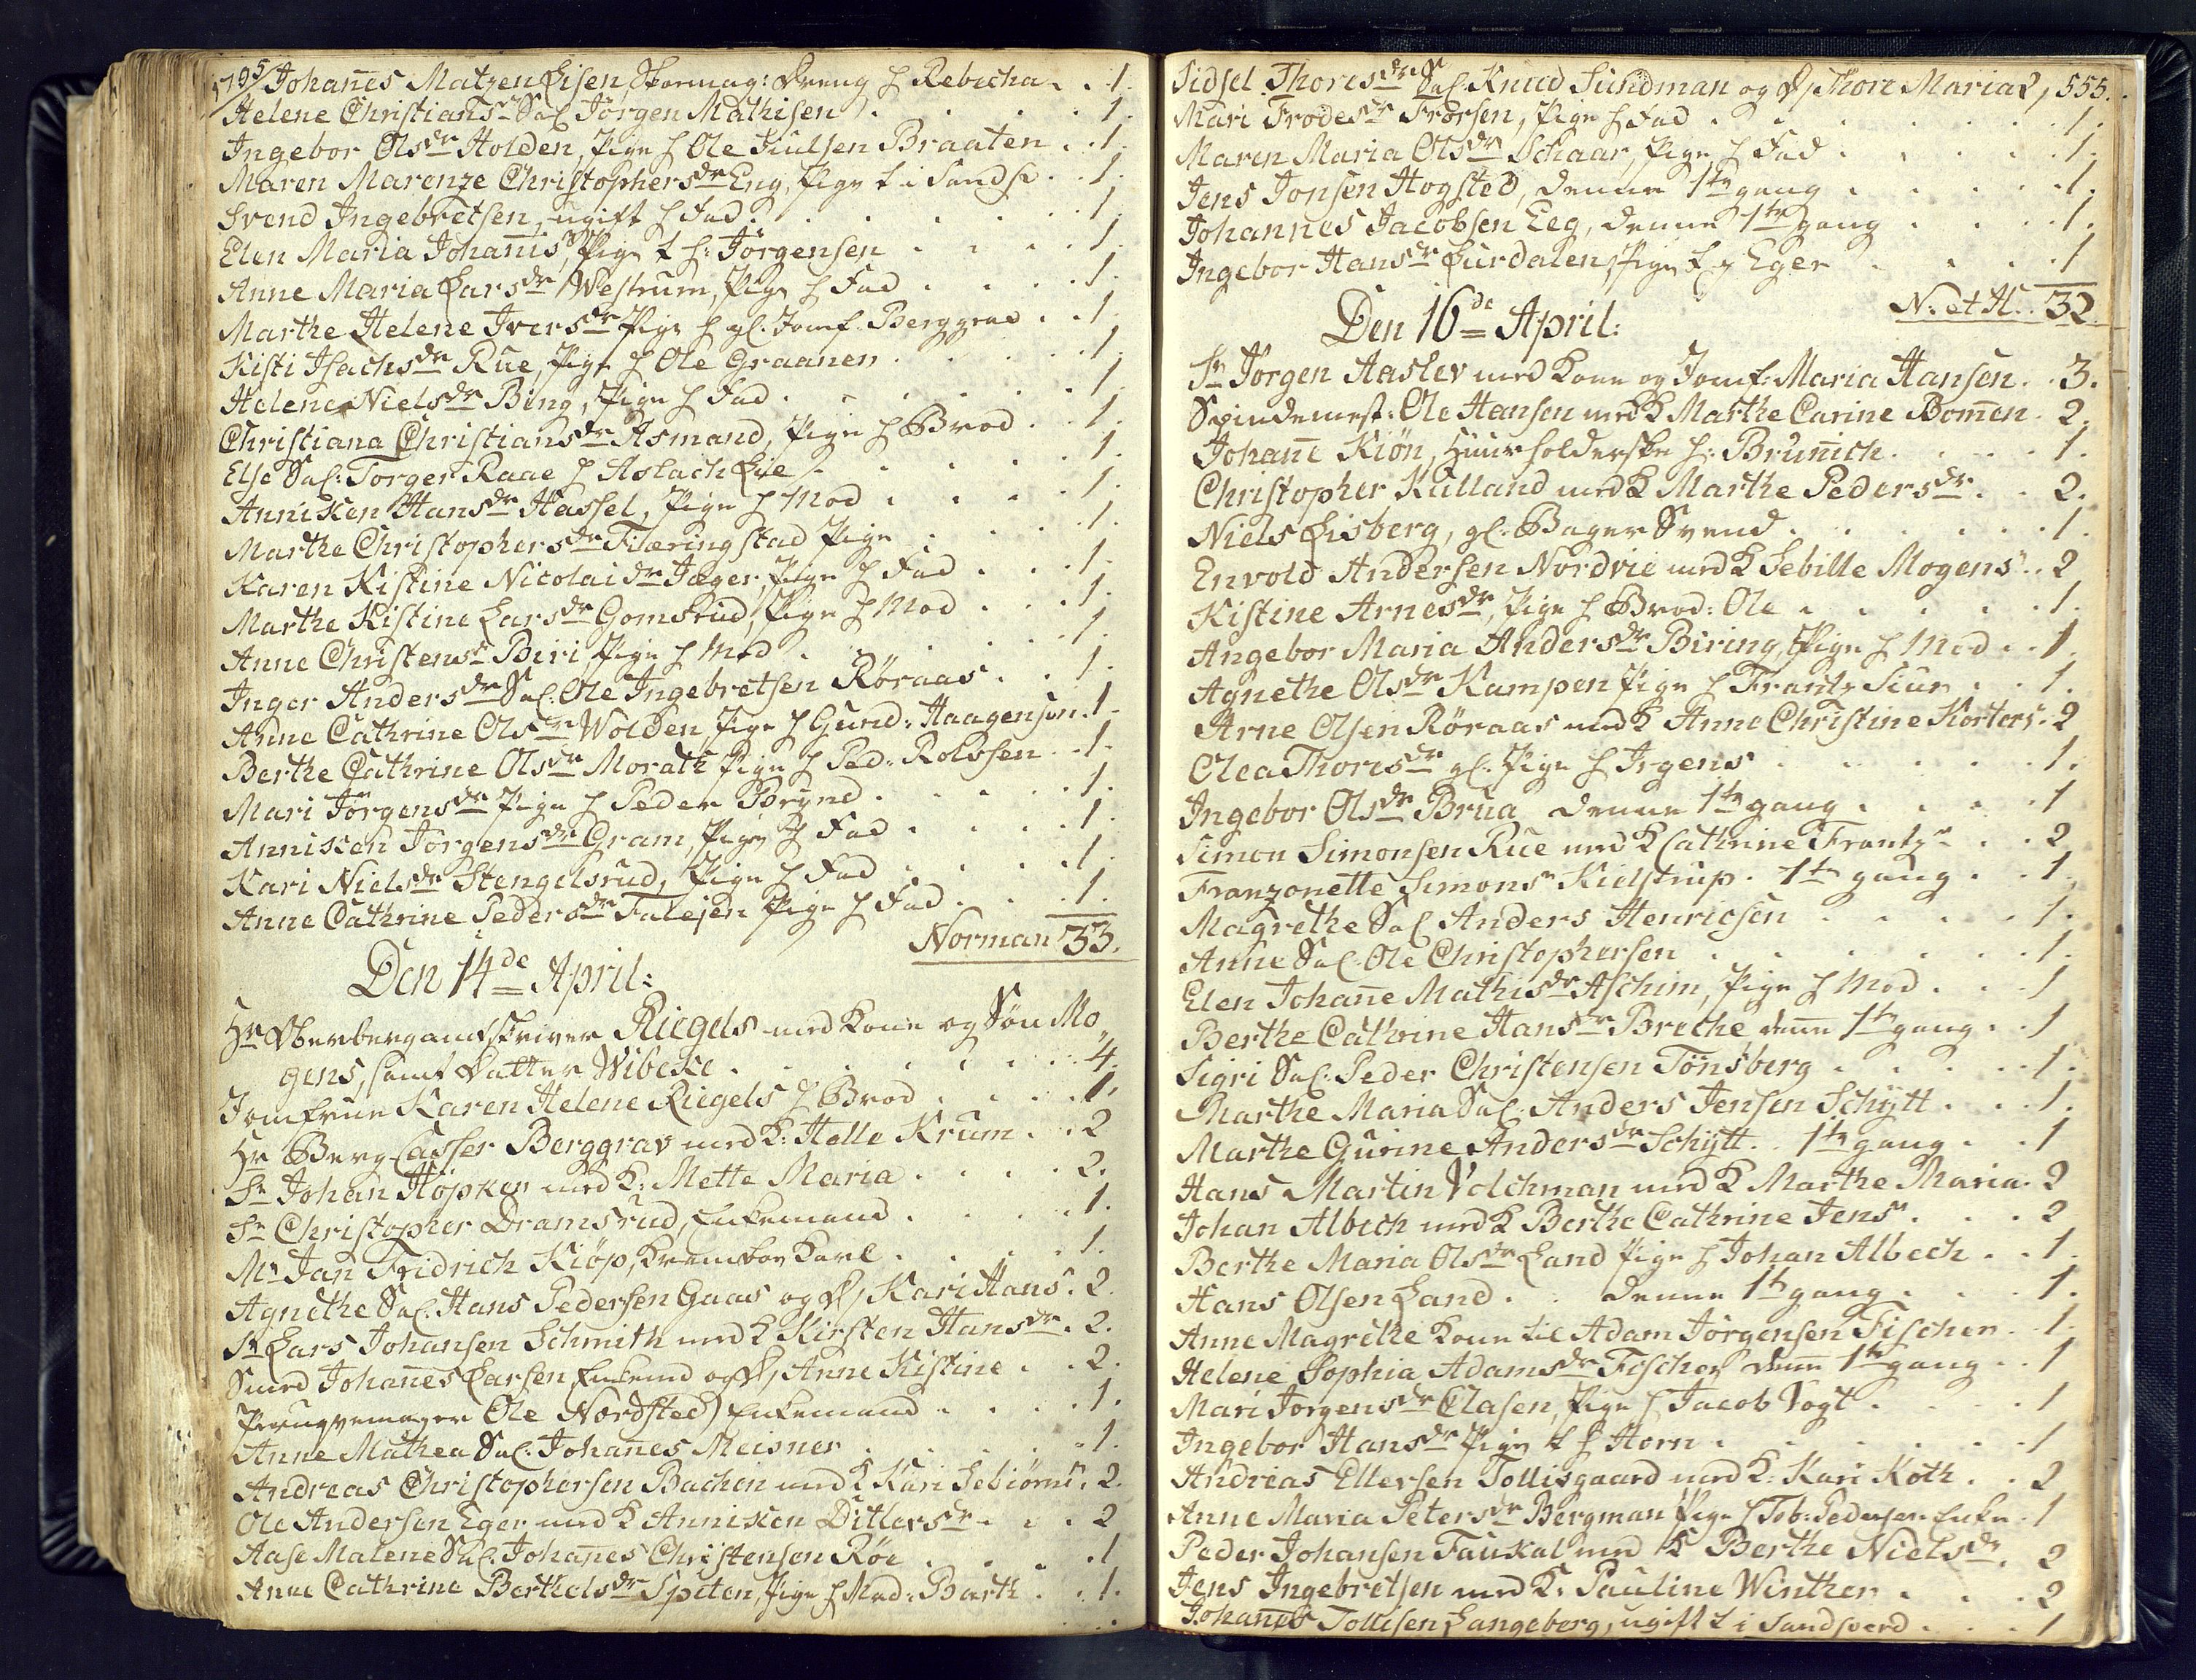 1795 Johan̄es Matzen Eisen, Skomag: Dreng h Rebecha . . 1.
Helene Christiansdr Sal Jörgen Mathisen . . . 1.
Ingebor Olsdr Holden, Pige h Ole Juulsen Braaten . . 1.
Maren Marenze Christophersdr Eng, Pige t i Sands . . 1.
Svend Ingebretsen, ugift h Fad . . . 1.
Elen Maria Johan̄is, Pige t h: Jörgensen . . . 1.
Anne Maria Larsdr Westrum, Pige h Fad . . . 1.
Marthe Helene Iversdr Pige h gl. Jomf. Berggrav . . 1.
Kisti Isachsdr Rue, Pige h Ole Graanen . . . 1.
Helene Nielsdr Bing, Pige h Fad . . . 1.
Christiana Christiansdr Asmand, Pige h Brod . . 1.
Else Sal: Torger Raae h Aslach Lie . . . 1.
Annisken Hansdr Hassel, Pige h Mod . . . 1.
Marthe Christophersdr Fiæringstad Pige . . . 1.
Karen Kistine Nicolaidr Jæger, Pige h Fad . . . 1.
Marthe Kistine Larsdr Gomsrud, Pige h Mod . . . 1.
Anne Christensr Biri Pige h Mod . . . 1.
Inger Andersdr Sal: Ole Ingebretsen Röraas . . 1.
Anne Cathrine Olsdr Wolden, Pige h Gund: Haagensen . 1.
Berthe Cathrine Olsdr Morath Pige h Ped: Rolvsen . . 1.
Mari Jörgensdr Pige h Peder Brynd . . . 1.
Annisken Jörgensdr Gram, Pige h Fad . . . 1.
Kari Nielsdr Stengelsrud, Pige h Fad . . . 1.
Anne Cathrine Pedersdr Falesen Pige h Fad . . . 1.
Norman 33.
Den 14de April:
Hr Oberbergamtskriver Riegels med Kone og Sön Mo„
gens, samt Datter Wibeke . . . 4.
Jomfrue Karen Helene Riegels h Brod . . . 1.
Hr Berg Casser Berggrav med K: Helle Krum . . 2
Sr Johan Höpker med K: Mette Maria . . . 2.
Sr Christopher Dramsrud, Enkemand . . . 1.
Mr Jan Fridrich Kiöp, Karl . . . 1.
Agnethe Sal. Hans Pedersen Gaas og D, Kari Hans . 2.
Sr Lars Johansen Schmith med K Kirsten Hansdr . 2.
Smed Johan̄es Larsen Enkemd og D, Anne Kistine . . 2.
Peruqvemager Ole Nordsted) Enkemand . . . 1.
Anne Mathea Sal. Johan̄es Meisner . . . 1.
Andreas Christophersen Bachen med K Kari . 2.
Ole Andersen Eger med K Annisken Ditlevsdr . . . 2
Aase Malene Sal. Johan̄es Christensen Röe . . . 1
Anne Cathrine Berthelsdr Spiten, Pige h Mad: Barth . . 1.
Sidsel Thoresdr Sal. Knud Sundman og D, Thore Maria 2, 555.
Mari Frodesdr Frorsen, Pige h Fad . . . 1.
Maren Maria Olsdr Schaar, Pige h Fad . . . 1.
Jens Jonsen Hogsted, denne 1te gang . . . 1.
Johannes Jacobsen Eeg, denne 1te gang . . . 1.
Ingebor Hansdr Lurdalen, Pige t Eger . . . 1
N. et H. . 32.
Den 16de April:
Sr Jörgen Aaslev med Kone og Jomf: Maria Hansen . . 3.
Spindemest: Ole Hansen med K Marthe Carine Bom̄en . 2.
Johan̄e Kiön, Huusholderske h: Brün̄ich . . . 1.
Christopher Kulland med K Marthe Pedersdr . . 2.
Niels Eisberg, gl: Bager Svend . . . 1.
Envold Andersen Nordvie med K Sebille Mogens . . 2
Kistine Arnesdr, Pige h Brod: Ole . . . 1.
Angebor Maria Andersdr Biring, Pige h Mod . . 1.
Agnethe Olsdr Kampen Pige h Frantz . . 1.
Arne Olsen Röraas med K Anne Christine Korters . 2
Olea Thoresdr gl: Pige h Irgens . . . 1.
Ingebor Olsdr Brua denne 1te gang . . . 1
Simon Simonsen Rue med K Cathrine Frantz . . . 2
Franzonette Simonsr Kielstrup . 1te gang . . 1.
Magrethe Sal Anders Henricsen . . . 1.
Anne Sal. Ole Christophersen . . . 1.
Elen Johan̄e Mathisdr Aschim, Pige h Mod . . . 1
Berthe Cathrine Hansdr Breche, denne 1te gang . . 1
Sigri Sal: Peder Christensen Tönsberg . . . 1.
Marthe Maria Sal: Anders Jensen Schÿtt . . . 1.
Marthe Gurine Andersdr Schÿtt . . 1te gang . . 1
Hans Martin Volchman med K Marthe Maria . 2
Johan Albech med K Berthe Cathrine Jens . . . 2
Berthe Maria Olsdr Land Pige h Johan Albech . . 1.
Hans Olsen Land . . denne 1te gang . . . 1.
Anne Magrethe Kone til Adam Jörgensen Fischer . . 1.
Helene Sophia Adamsdr Fischer denne 1te gang . . 1
Mari Jorgensdr Clasen, Pige h Jacob Vogt . . . 1
Ingebor Hansdr Pige t h Horn . . . 1
Andreas Ellevsen Tollisgaard med K: Kari Koth . . 2
Anne Maria Petersdr Bergman Pige h Tob: Pedersen Enke . 1
Peder Johansen Faukal med K Berthe Nielsdr . 2
Jens Ingebretsen med K: Pauline Winther . . . 2
Johan̄es Tollisen Langeberg, ugift t i Sandsverd . . . 1